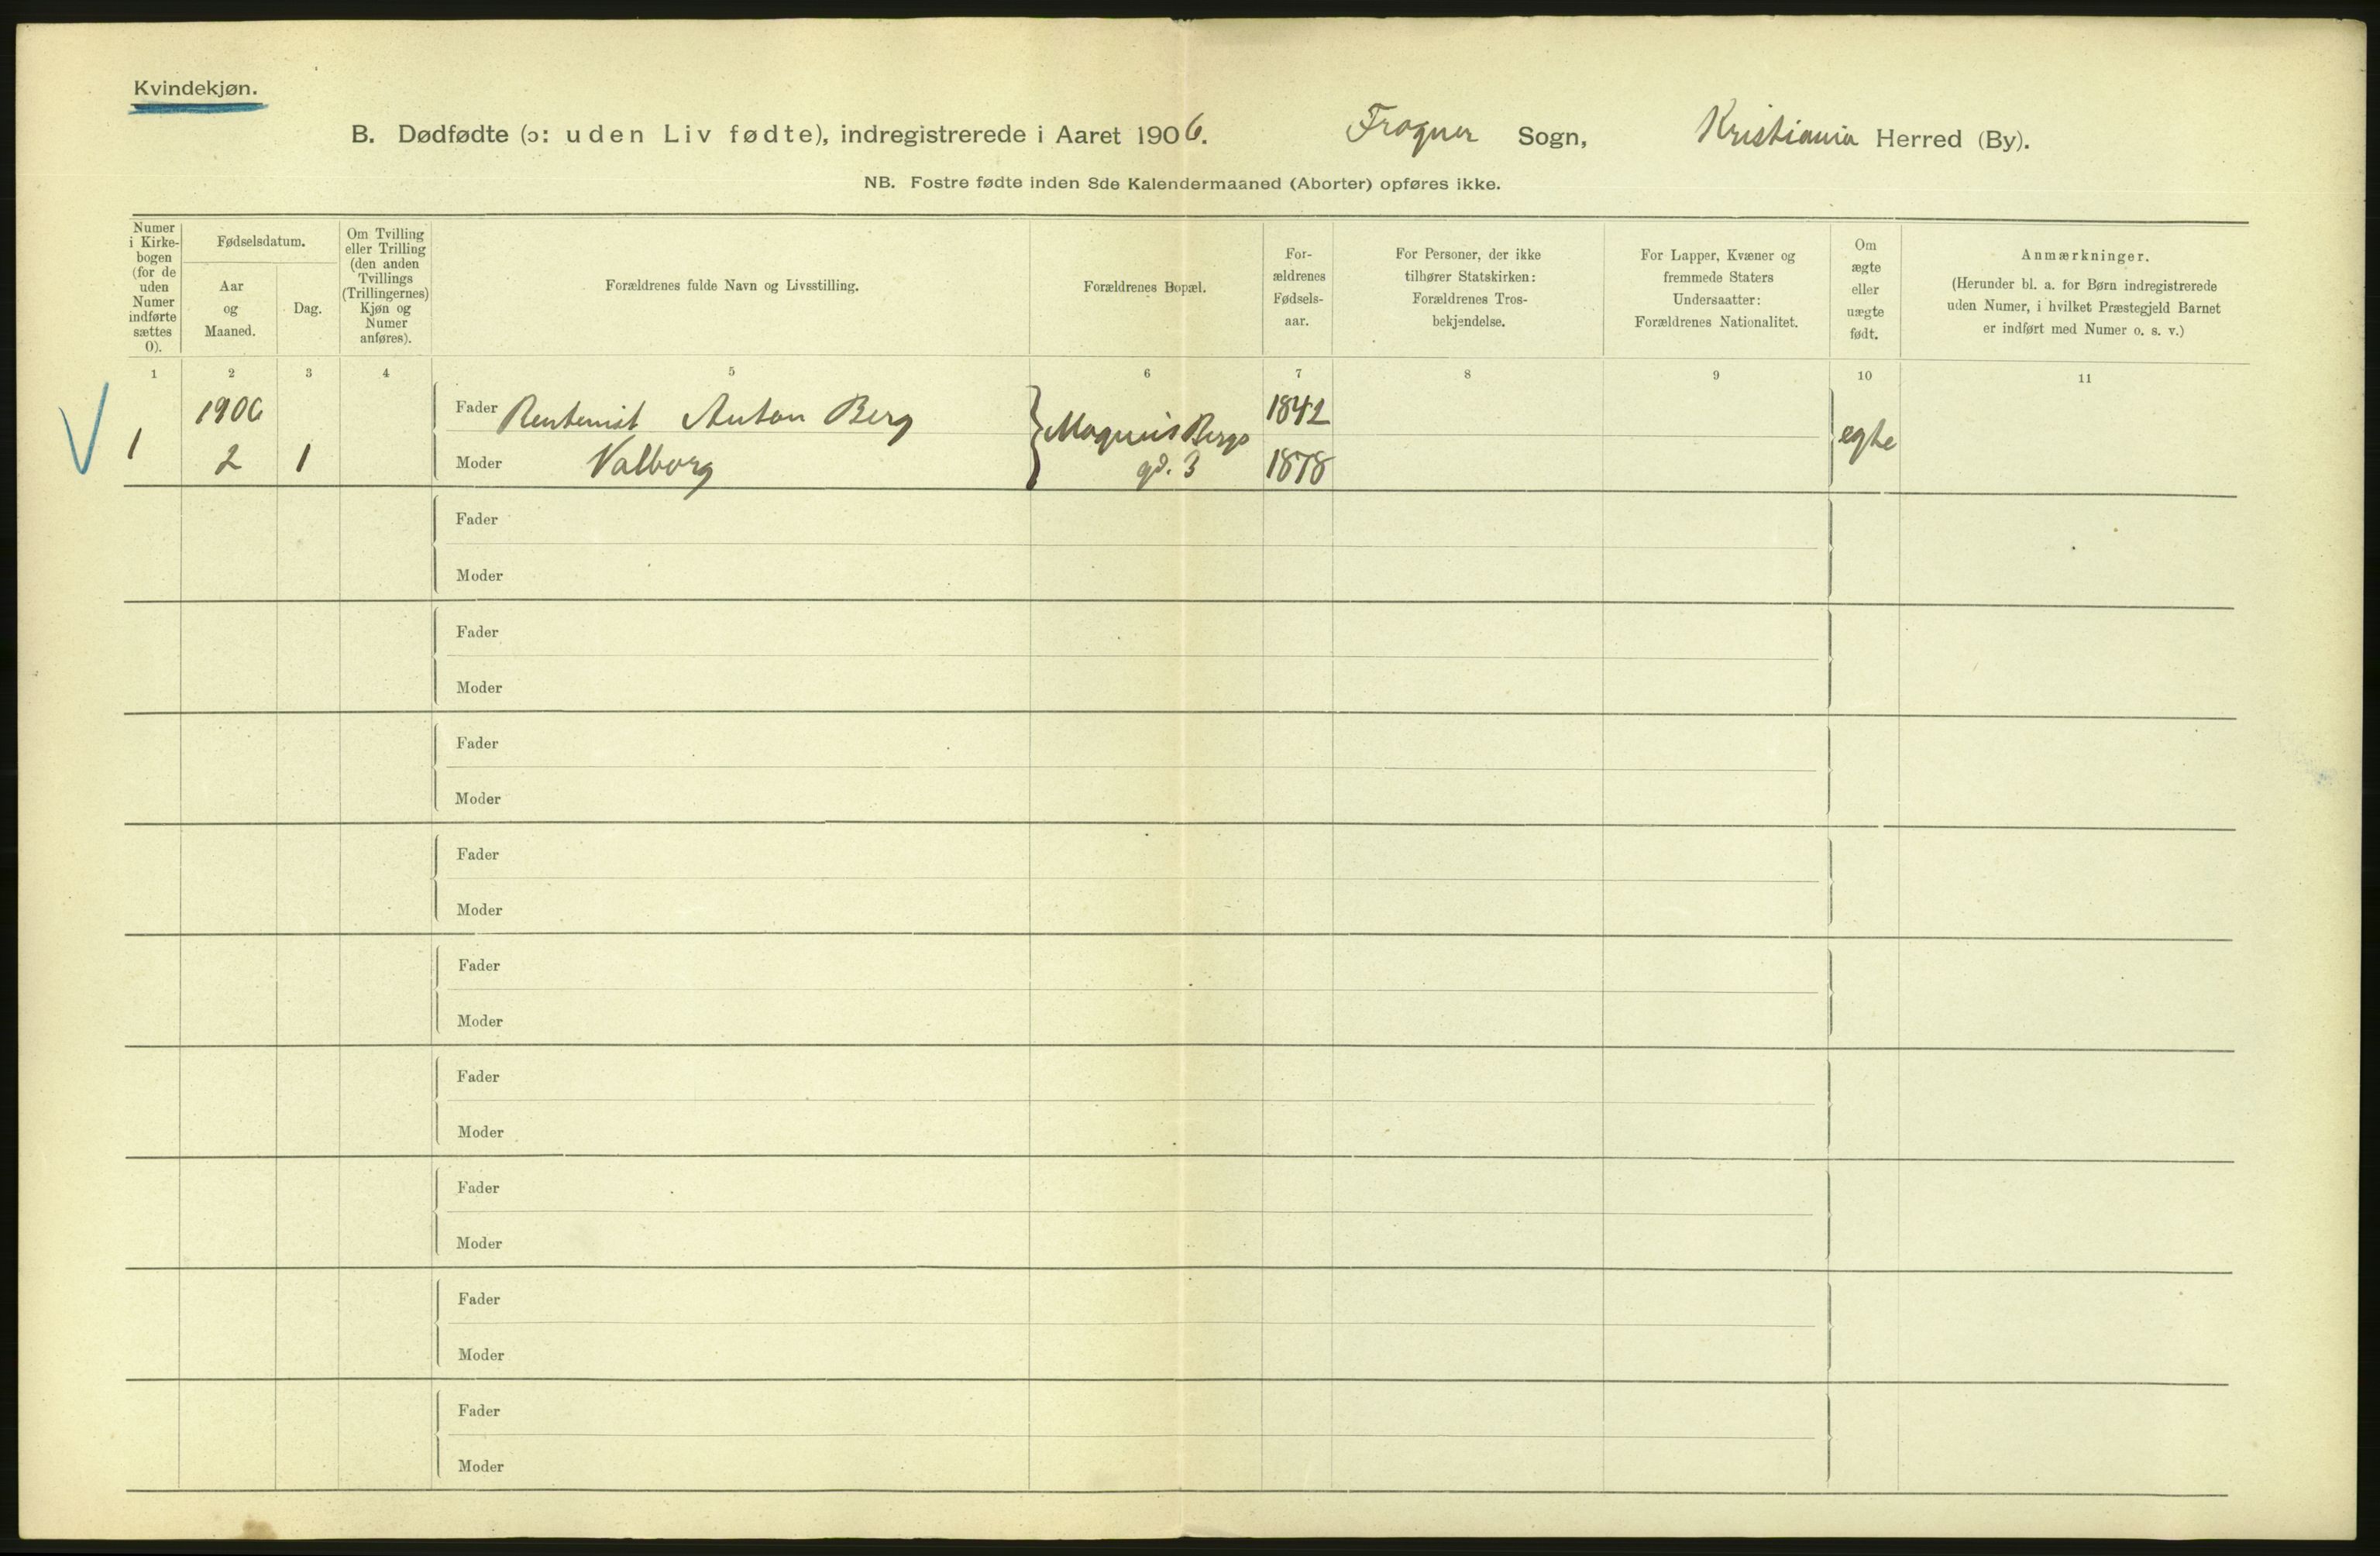 Kvindekjøn.
B. Dødfødte (ɔ: uden Liv fødte), indregistrerede i Aaret 1906. Frogner Sogn, Kristiania Herred (By).
NB. Fostre fødte inden 8de Kalendermaaned (Aborter) opføres ikke.
Numer
i Kirke-
bogen
(for de
uden
Numer
indførte
sættes
0).
Fødselsdatum.
Aar
og
Maaned.
Dag.
Om Tvilling
eller Trilling
(den anden
Tvillings
(Trillingernes)
Kjøn og
Numer
anføres).
Forældrenes fulde Navn og Livsstilling.
Forældrenes Bopæl.
For-
ældrenes
Fødsels-
aar.
For Personer, der ikke
tilhører Statskirken:
Forældrenes Tros-
bekjendelse.
For Lapper, Kvæner og
fremmede Staters
Undersaatter:
Forældrenes Nationalitet.
Om
ægte
eller
uægte
født.
Anmærkninger.
(Herunder bl. a. for Børn indregistrerede
uden Numer, i hvilket Præstegjeld Barnet
er indført med Numer o. s. v.)
1 2 3 4 5 6 7 8 9 10 11
1906 Fader Anton Berg Magnus Bergs 1842
1 2 1 Moder Valborg gd. 3 1878 egte
Fader
Moder
Fader
Moder
Fader
Moder
Fader
Moder
Fader
Moder
Fader
Moder
Fader
Moder
Fader
Moder
Fader
Moder